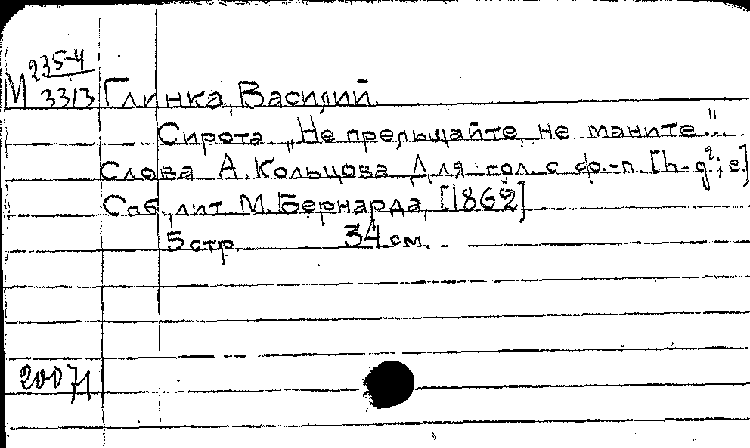 М 235-4
3313
Глинка, Василий.
Сирота „Не прельщайте, не маните..."
Слова А. Кольцова Для гол. с ф.-п. [h-g²; e]
Спб., лит. М. Бернарда, [1862]
5 стр. 34 см.
20071